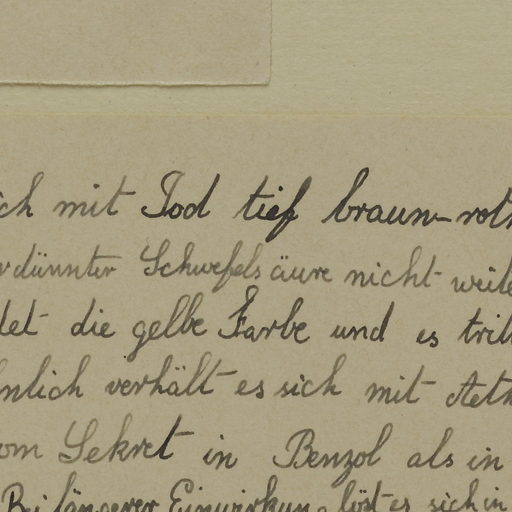 ich mit Jod tief braun-roth
verdünnter Schwefelsäure nicht weite
det die gelbe Farbe und es tritt
hnlich verhält es sich mit Aeth
om Sekret in Benzol als in
Bei längerer Einwirkung löst es sich in